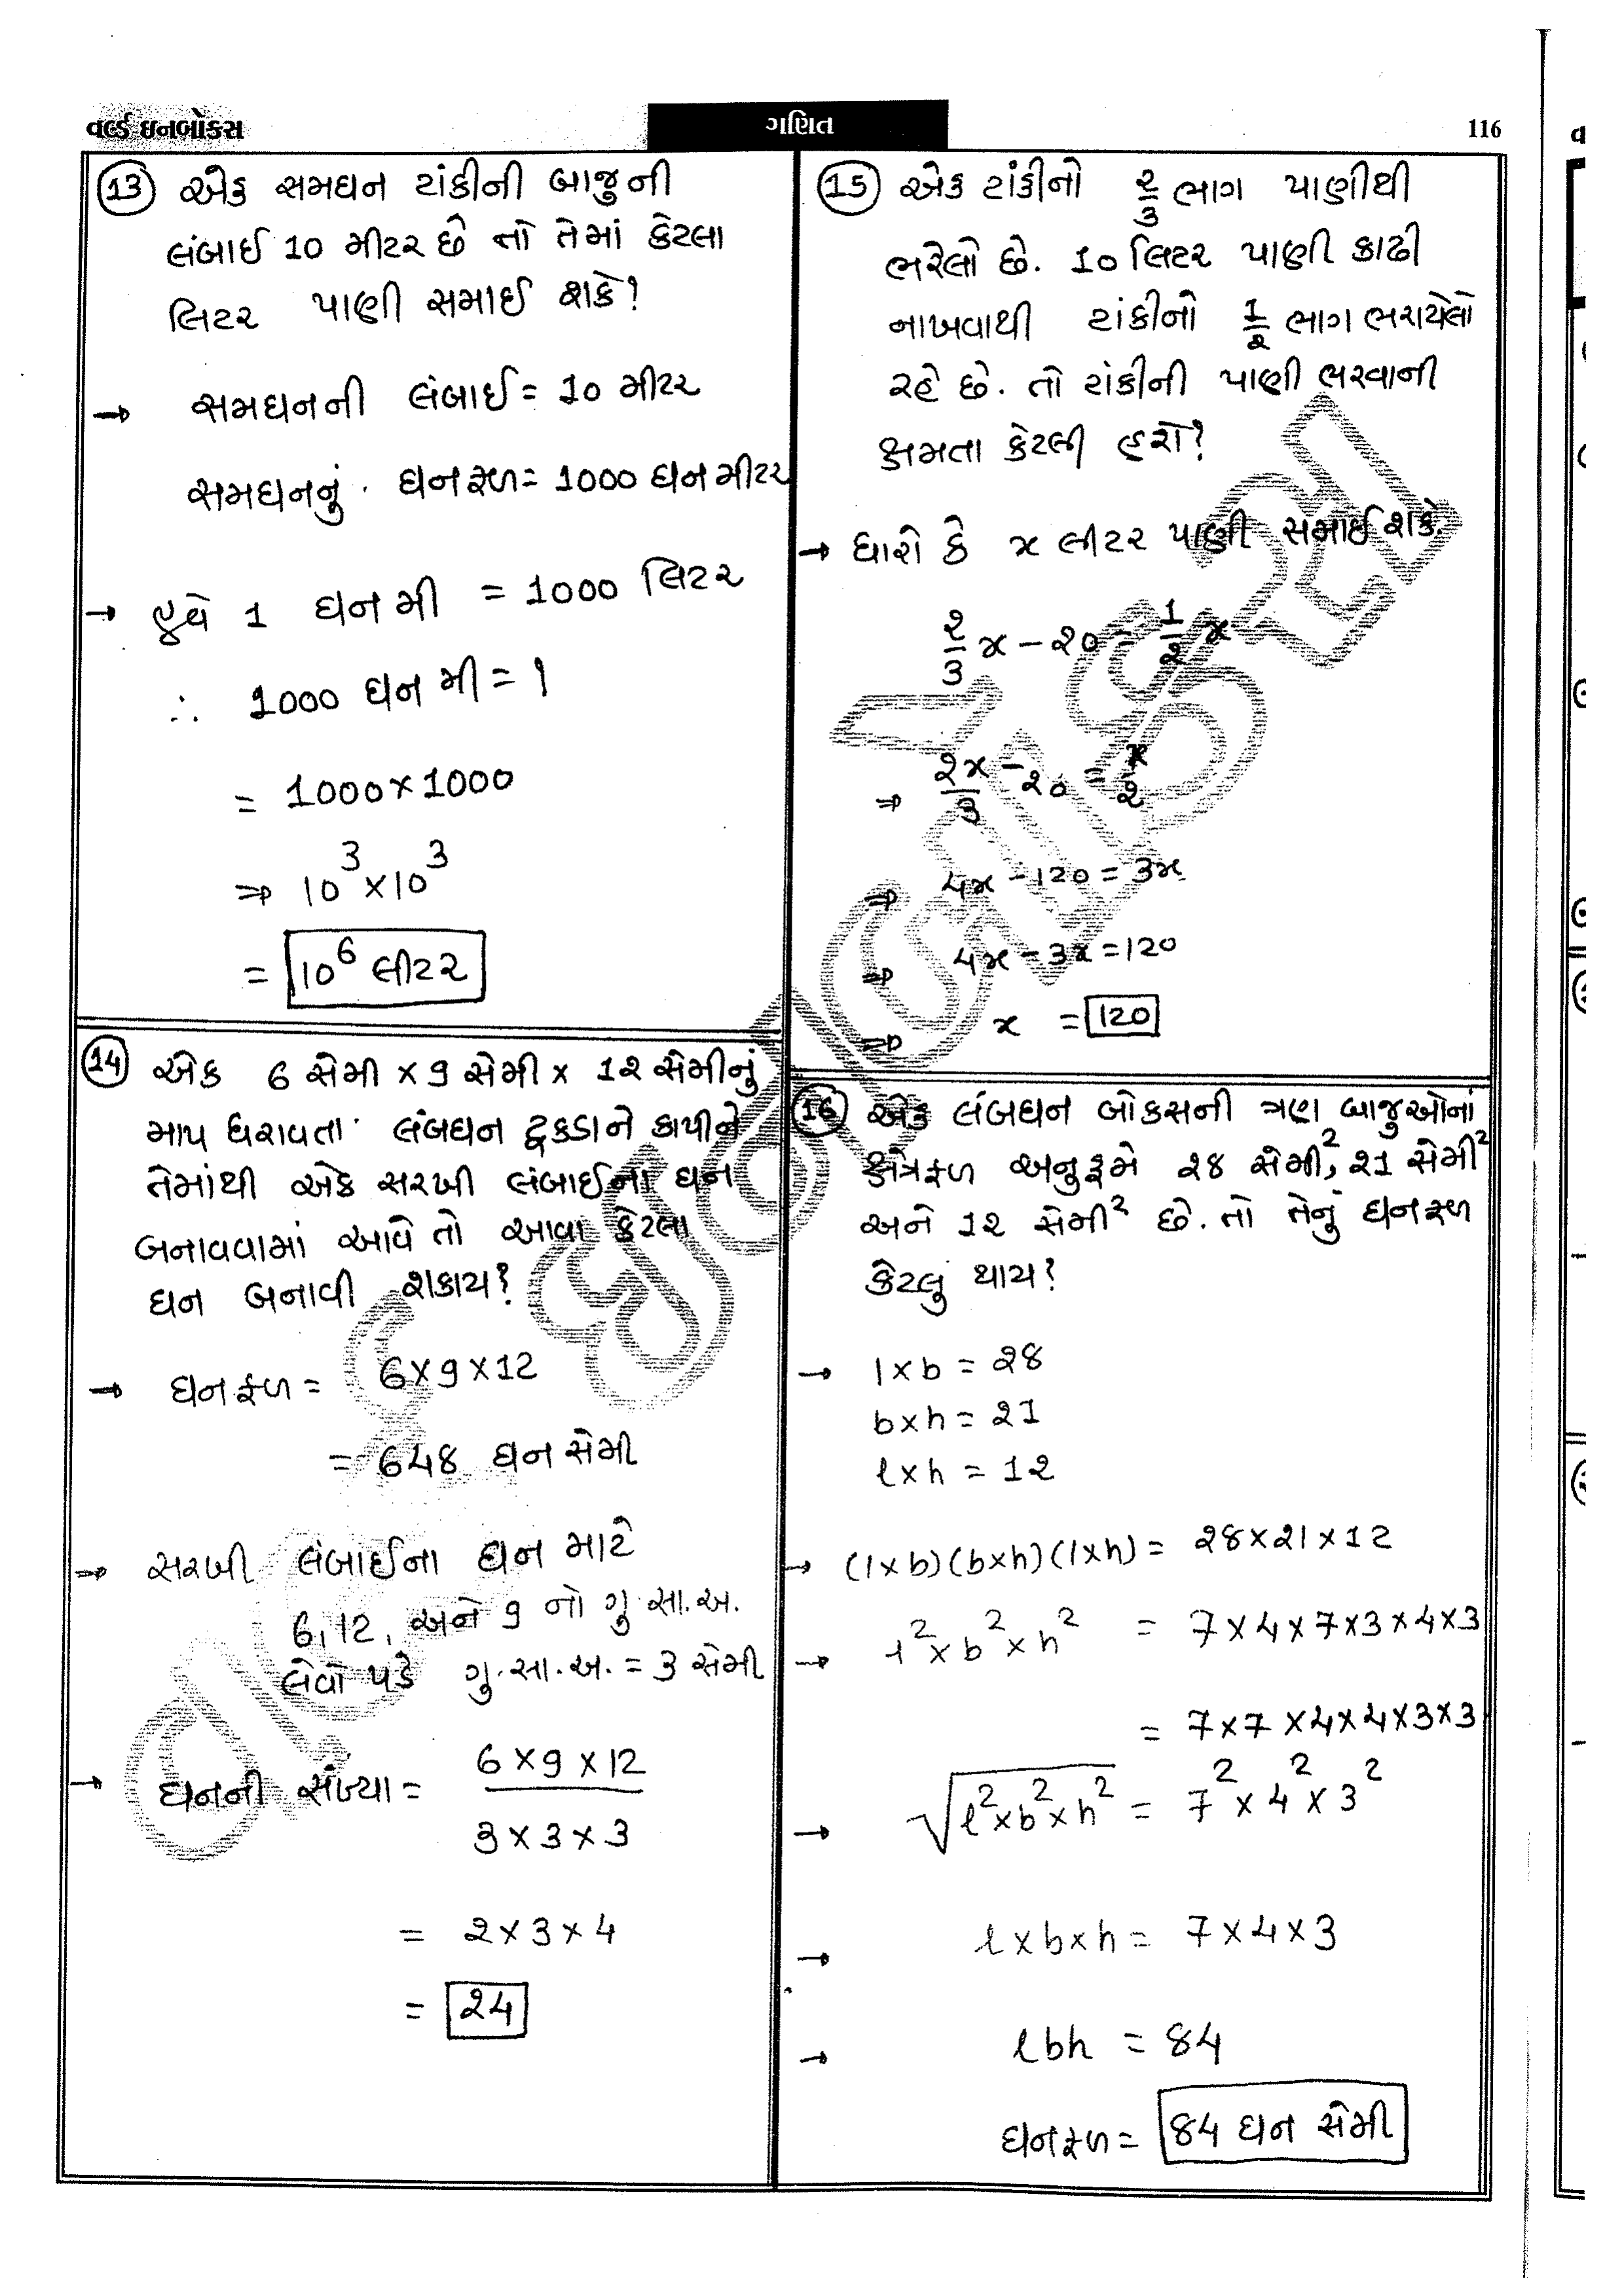 વર્લ્ડ ઇનબોક્સ
ગણિત
116
13 એક સમઘન ટાંકીની બાજુની
લંબાઈ 10 મીટર છે તો તેમાં કેટલા
લિટર પાણી સમાઈ શકે?
→ સમઘનની લંબાઈ = 10 મીટર
સમઘનનું ઘનફળ = 1000 ઘન મીટર
→ હવે 1 ઘન મી = 1000 લિટર
∴ 1000 ઘન મી = ?
= 1000 × 1000
⇒ 10³ × 10³
= 10⁶ લીટર
14 એક 6 સેમી × 9 સેમી × 1૨ સેમીનું
માપ ધરાવતા લંબઘન ટુકડાને કાપીને
તેમાંથી એક સરખી લંબાઈના ઘન
બનાવવામાં આવે તો આવા કેટલા
ઘન બનાવી શકાય?
→ ઘનફળ = 6 × 9 × 12
= 648 ઘન સેમી
→ સરખી લંબાઈના ઘન માટે
6, 12, અને 9 નો ગુ.સા.અ.
લેવો પડે ગુ.સા.અ. = 3 સેમી
→ ઘનની સંખ્યા = 6 × 9 × 12
3 × 3 × 3
= ૨ × 3 × 4
= ૨4
15 એક ટાંકીનો ૨/3 ભાગ પાણીથી
ભરેલો છે. 10 લિટર પાણી કાઢી
નાખવાથી ટાંકીનો 1/૨ ભાગ ભરાયેલો
રહે છે. તો ટાંકીની પાણી ભરવાની
ક્ષમતા કેટલી હશે?
→ ધારો કે x લીટર પાણી સમાઈ શકે.
૨/3 x − ૨0 = 1/૨ x
⇒ ૨x/3 − ૨0 = x/૨
⇒ 4x − 120 = 3x
⇒ 4x − 3x = 120
⇒ x = 120
16 એક લંબઘન બોકસની ત્રણ બાજુઓનાં
ક્ષેત્રફળ અનુક્રમે ૨8 સેમી², ૨1 સેમી²
અને 1૨ સેમી² છે. તો તેનું ઘનફળ
કેટલું થાય?
→ l × b = ૨8
b × h = ૨1
l × h = 1૨
→ (l × b)(b × h)(l × h) = ૨8 × ૨1 × 12
→ l² × b² × h² = 7 × 4 × 7 × 3 × 4 × 3
= 7 × 7 × 4 × 4 × 3 × 3
→ √l² × b² × h² = 7² × 4² × 3²
→ l × b × h = 7 × 4 × 3
→ lbh = 84
ઘનફળ = 84 ઘન સેમી